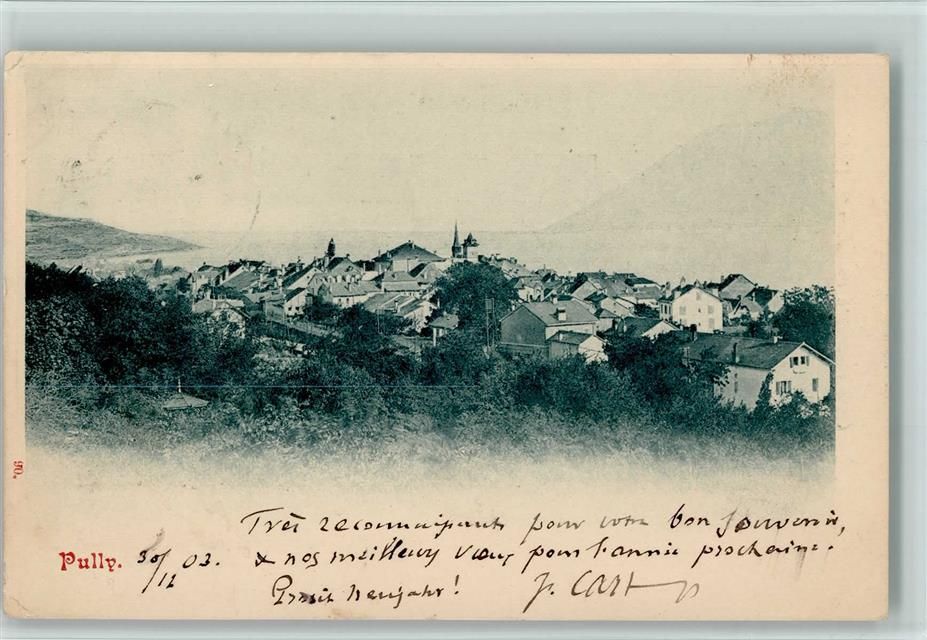 90.
Très reconnaissants pour votre bon souvenir,
Pully. 30/12 03. & nos meilleurs vœux pour l'année prochaine.
Prosit Neujahr! J.